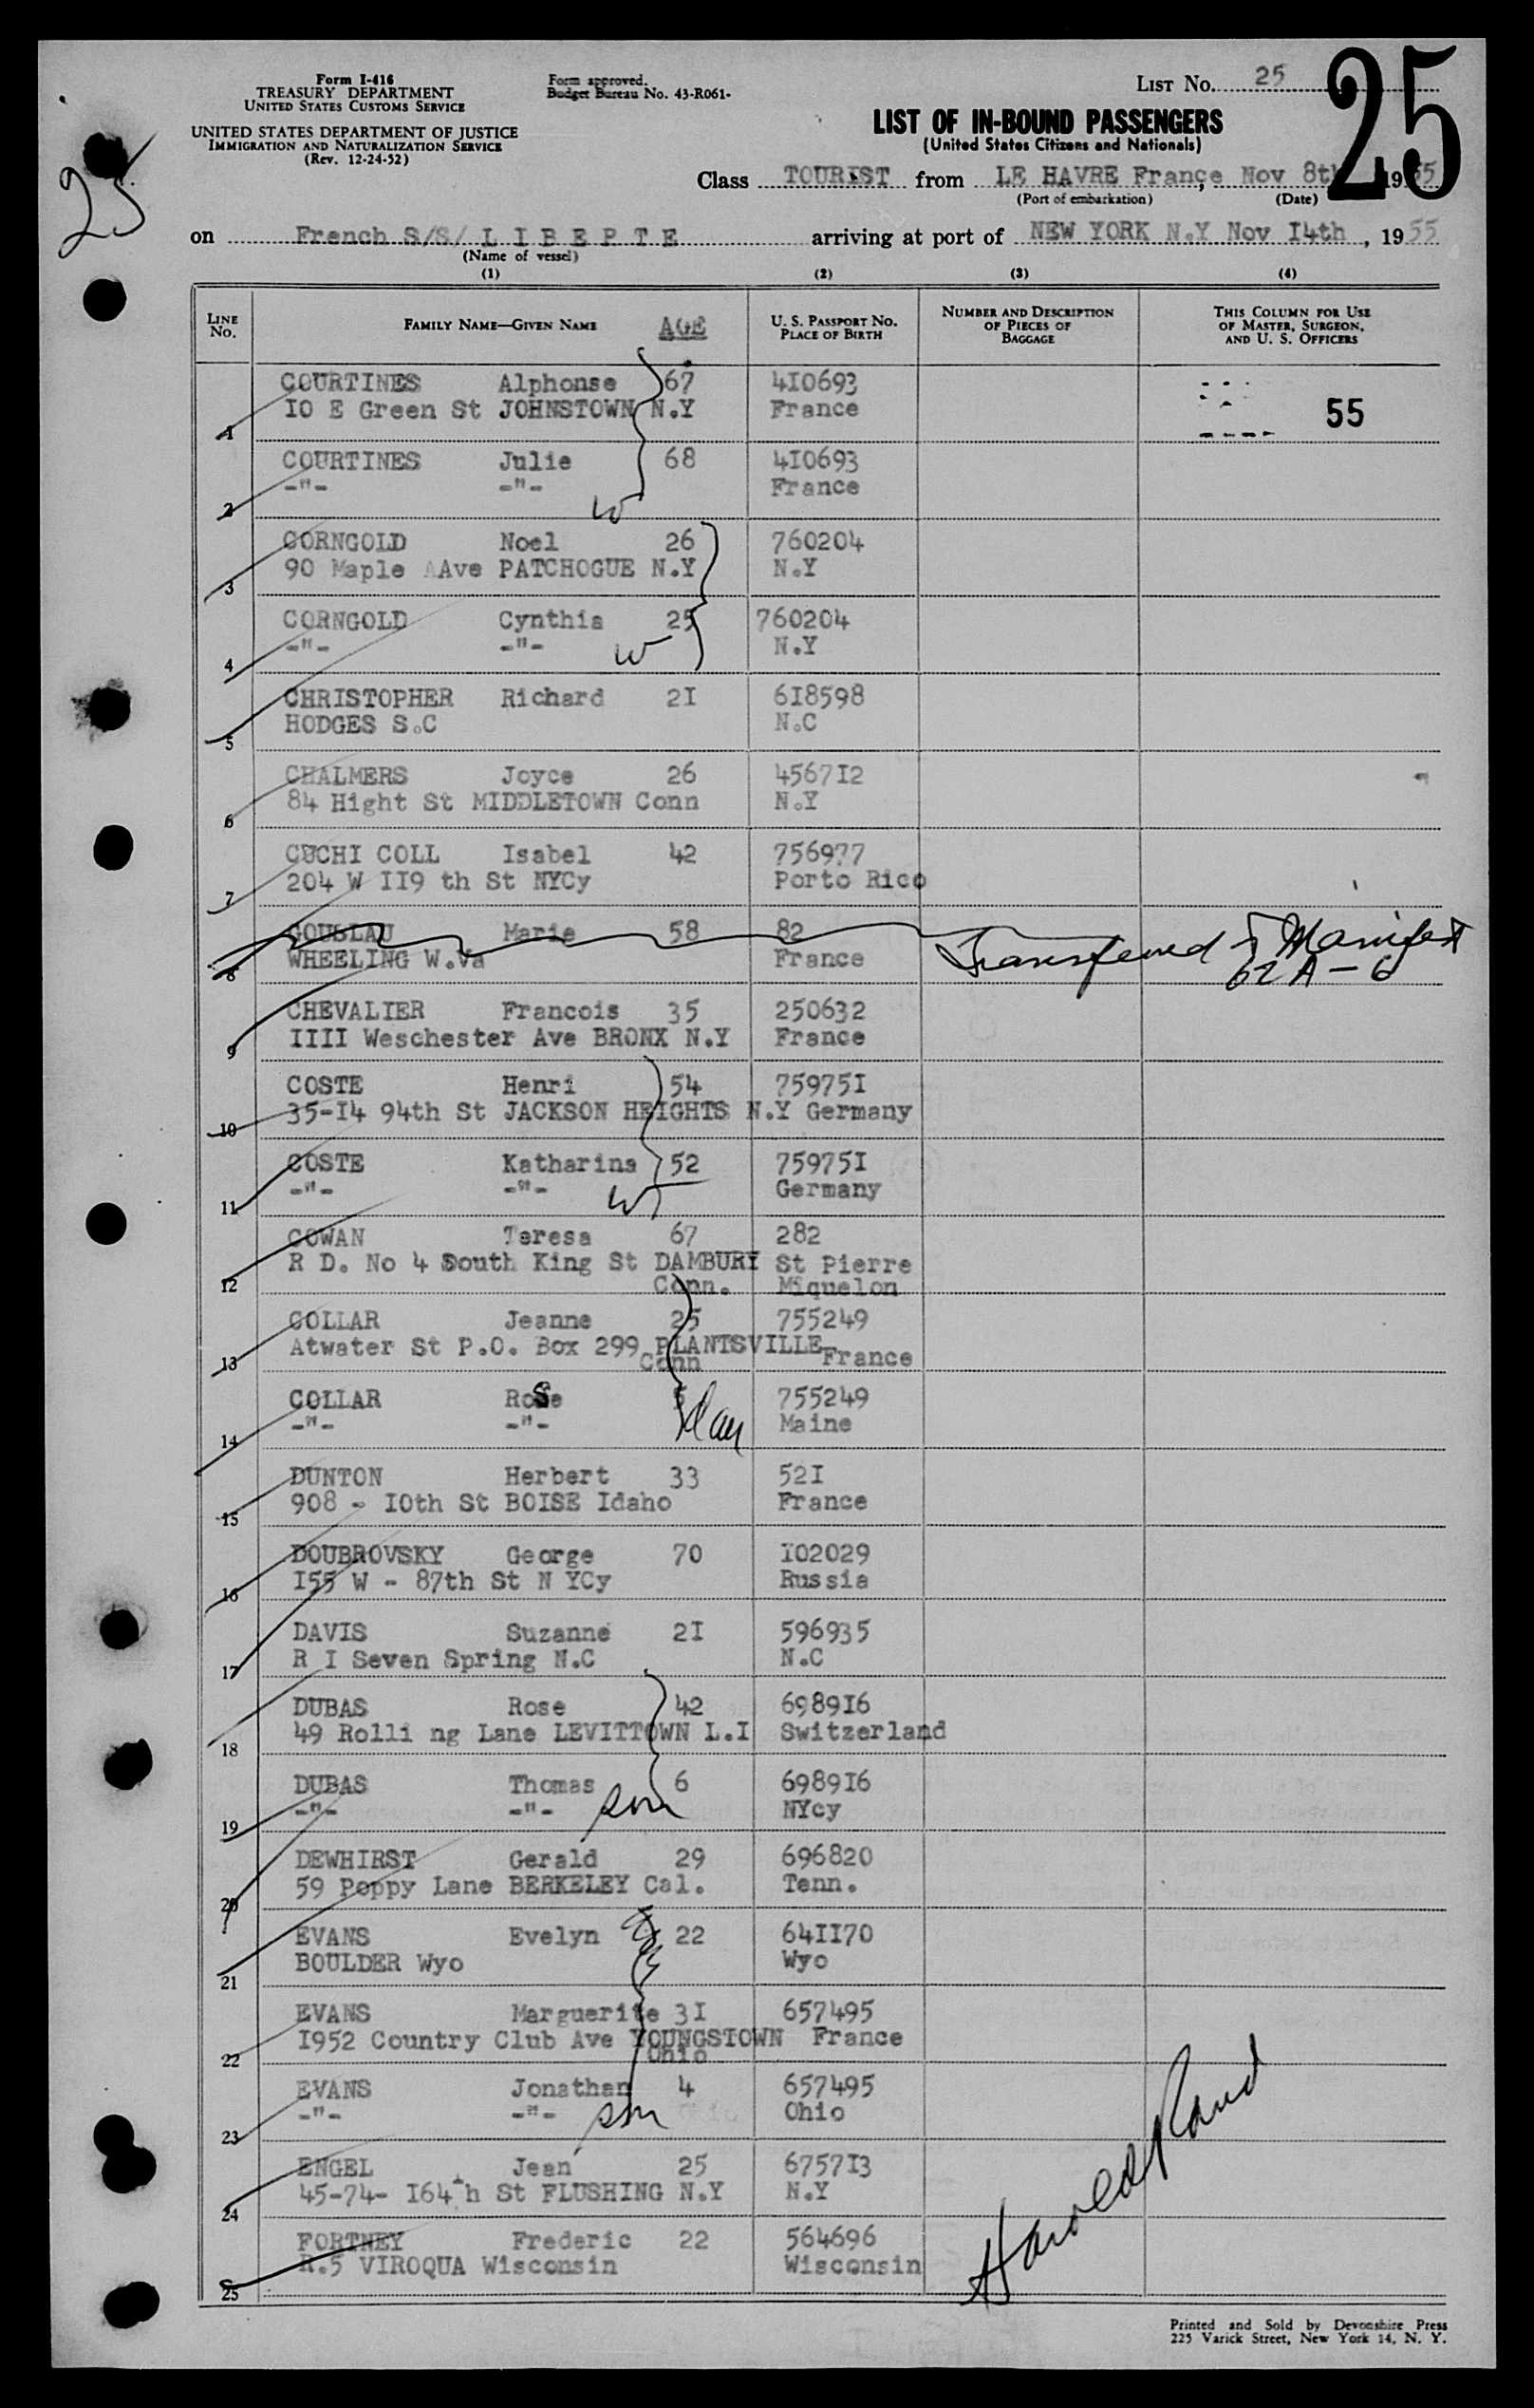 Form I-416
TREASURY DEPARTMENT
UNITED STATES CUSTOMS SERVICE
UNITED STATES DEPARTMENT OF JUSTICE
IMMIGRATION AND NATURALIZATION SERVICE
(Rev. 12-24-52)
Form approved.
Budget Bureau No. 43-R061-
LIST NO. 25
25
25
LIST OF IN-BOUND PASSENGERS
(United States Citizens and Nationals)
Class TOURIST from LE HAVRE France, Nov 8th 1955
(Port of embarkation) (Date)
on French S/S/ L I B E P T E arriving at port of NEW YORK N.Y Nov I4th, 1955
(Name of vessel)
(1) (2) (3) (4)
LINE NO. FAMILY NAME—GIVEN NAME AGE U. S. PASSPORT NO. PLACE OF BIRTH NUMBER AND DESCRIPTION OF PIECES OF BAGGAGE THIS COLUMN FOR USE OF MASTER, SURGEON, AND U. S. OFFICERS
COURTINES Alphonse 67 4I0693
1 IO E Green St JOHNSTOWN N.Y France 55
COURTINES Julie 68 4I0693
2 -"- -"- W France
CORNGOLD Noel 26 760204
3 90 Maple AAve PATCHOGUE N.Y N.Y
CORNGOLD Cynthia 25 760204
4 -"- -"- W N.Y
CHRISTOPHER Richard 2I 6I8598
5 HODGES S.C N.C
CHALMERS Joyce 26 4567I2
6 84 Hight St MIDDLETOWN Conn N.Y
CUCHI COLL Isabel 42 756977
7 204 W II9 th St NYCy Porto Rico
GOUBLAU Marie 58 82 Transferred to Manifest
8 WHEELING W.Va France 62A-6
CHEVALIER Francois 35 250632
9 IIII Weschester Ave BRONX N.Y France
COSTE Henri 54 75975I
10 35-I4 94th St JACKSON HEIGHTS N.Y Germany
COSTE Katharina 52 75975I
11 -"- -"- W Germany
COWAN Teresa 67 282
12 R D. No 4 South King St DAMBURY St Pierre
Conn. Miquelon
COLLAR Jeanne 25 755249
13 Atwater St P.O. Box 299 PLANTSVILLE France
Conn
COLLAR Rose 5 755249
14 -"- -"- dau Maine
DUNTON Herbert 33 52I
15 908 - IOth St BOISE Idaho France
DOUBROVSKY George 70 I02029
16 I55 W - 87th St N YCy Russia
DAVIS Suzanne 2I 596935
17 R I Seven Spring N.C N.C
DUBAS Rose 42 6989I6
18 49 Rolli ng Lane LEVITTOWN L.I Switzerland
DUBAS Thomas 6 6989I6
19 -"- -"- son NYcy
DEWHIRST Gerald 29 696820
20 59 Poppy Lane BERKELEY Cal. Tenn.
EVANS Evelyn 22 64II70
21 BOULDER Wyo Wyo
EVANS Marguerite 3I 657495
22 I952 Country Club Ave YOUNGSTOWN France
Ohio
EVANS Jonathan 4 657495
23 -"- -"- son Ohio
ENGEL Jean 25 6757I3
24 45-74- I64th St FLUSHING N.Y N.Y
FORTNEY Frederic 22 564696
25 R.5 VIROQUA Wisconsin Wisconsin
Printed and Sold by Devonshire Press
225 Varick Street, New York 14, N. Y.